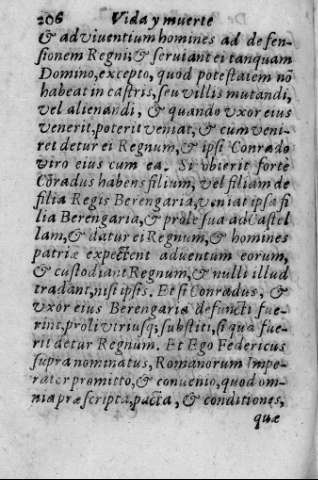 206 Vida y muerte
& adviventium homines ad defen-
sionem Regni: & seruiant ei tanquam
Domino, excepto, quod potestatem nō
habeat in castris, seu villis mutandi,
vel alienandi, & quando vxor eius
venerit, poterit veniat, & cum veni-
ret detur ei Regnum, & ipsi Conrado
viro eius cum ea. Si obierit forte
Cōradus habens filium, vel filiam de
filia Regis Berengaria, veniat ipsa fi
lia Berengaria, & prole sua ad Castel
lam, & datur ei Regnum, & homines
patriæ expectent aduentum eorum,
& custodiant Regnum, & nulli illud
tradant, nisi ipsis. Et si Conradus, &
vxor eius Berengaria defuncti fue-
rint, proli vtriusq; substiti, si qua fue-
rit detur Regnum. Et Ego Federicus
supra nominatus, Romanorum Impe-
rator promitto, & conuenio, quod om-
nia præscripta, pacta, & conditiones,
quæ